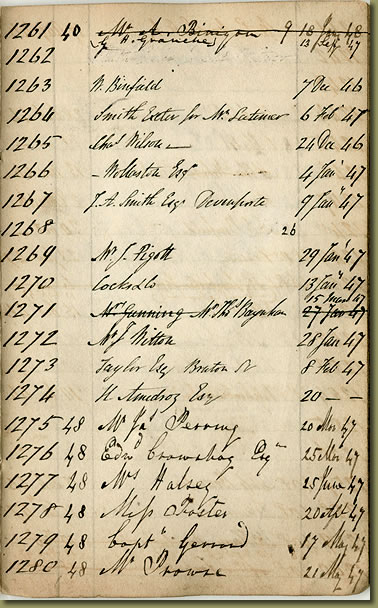 1261 40 Mr A. Binigon 9 18 Jan 48
A. Granville 13 Sept 47
1262
1263 W. Binfield 7 Dec 46
1264 Smith Exeter for Mr Latimer 6 Feb 47
1265 Chas Wilson 24 Dec 46
1266 - Wollaston Esqr 4 Jany 47
1267 J. A. Smith Esqr Devonporte 9 Jany 47
1268 26
1269 Mr J. Pigott 29 Jany 47
1270 Cocks & Co 13 Jany 47
15 March 47
1271 Mr Gunning Mr Thos Baynham 27 Jan 47
1272 Mr J Witton 28 Jan 47
1273 Taylor Esq Bruton St 8 Feb 47
1274 H Amedroz Esq 20 - -
1275 48 Mr Jas Perring 20 Mar 47
1276 48 Edwd Crawshay Esqre 25 Mar 47
1277 48 Mrs Halsey 25 June 47
1278 48 Miss Foster 20 47
1279 48 Captn Gerrard 17 May 47
1280 48 Mr Prowse 21 May 47